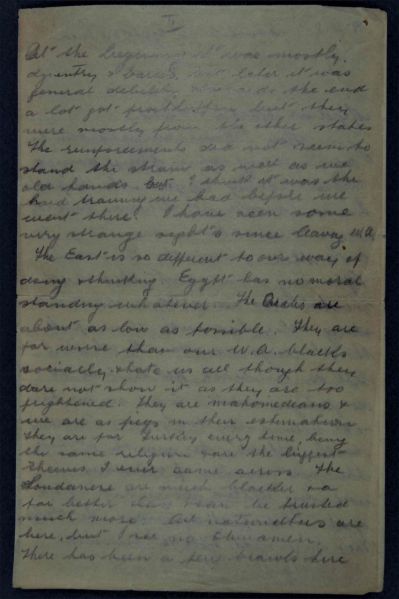 II
At the beginning it was mostly
dysentry & but later it was
general debility, the end
a lot got frostbitten but they
were mostly from the other states
The reinforcements did not seem to
stand the strain as well as we
old hands but I think it was the
hard training we had before we
went there. I have seen some
very strange sights since leaving W.A.
The East is so different to our way of
doing & thinking. Egypt has no moral
standing whatever. The are
about as low as possible. They are
far worse than our W.A. blacks
socially, & hate us all though they
dare not show it as they are too
frightened. They are mahomedans &
we are as pigs in their estimation
They are for Turkey every time, being
the same religion & are the biggest
thieves I ever came across. The
are much blacker & a
far better class & can be trusted
much more. All nationalities are
here, but I see no Chinamen.
There has been a few brawls here